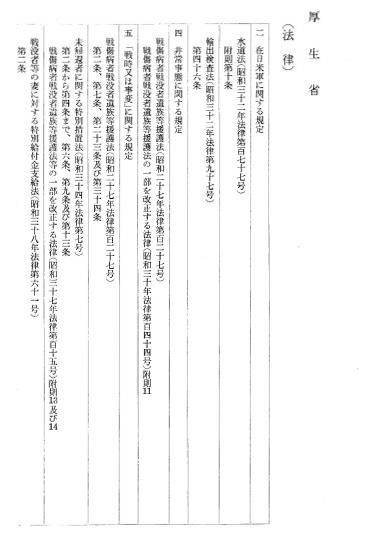 厚生省
(法律)
二 在日米軍に関する規定
水道法(昭和三十二年法律第百七十七号)
附則第十条
輸出検査法(昭和三十二年法律第九十七号)
第四十六条
四 非常事態に関する規定
戦傷病者戦没者遺族等援護法(昭和二十七年法律第百二十七号)
戦傷病者戦没者遺族等援護法の一部を改正する法律(昭和三十年法律第百四十四号)附則11
五 「戦時又は事変」に関する規定
戦傷病者戦没者遺族等援護法(昭和二十七年法律第百二十七号)
第二条、第七条、第二十三条及び第三十四条
未帰還者に関する特別措置法(昭和三十四年法律第七号)
第二条から第四条まで、第六条、第九条及び第十三条
戦傷病者戦没者遺族等援護法等の一部を改正する法律(昭和三十七年法律第百十五号)附則13及び14
戦没者等の妻に対する特別給付金支給法(昭和三十八年法律第六十一号)
第二条